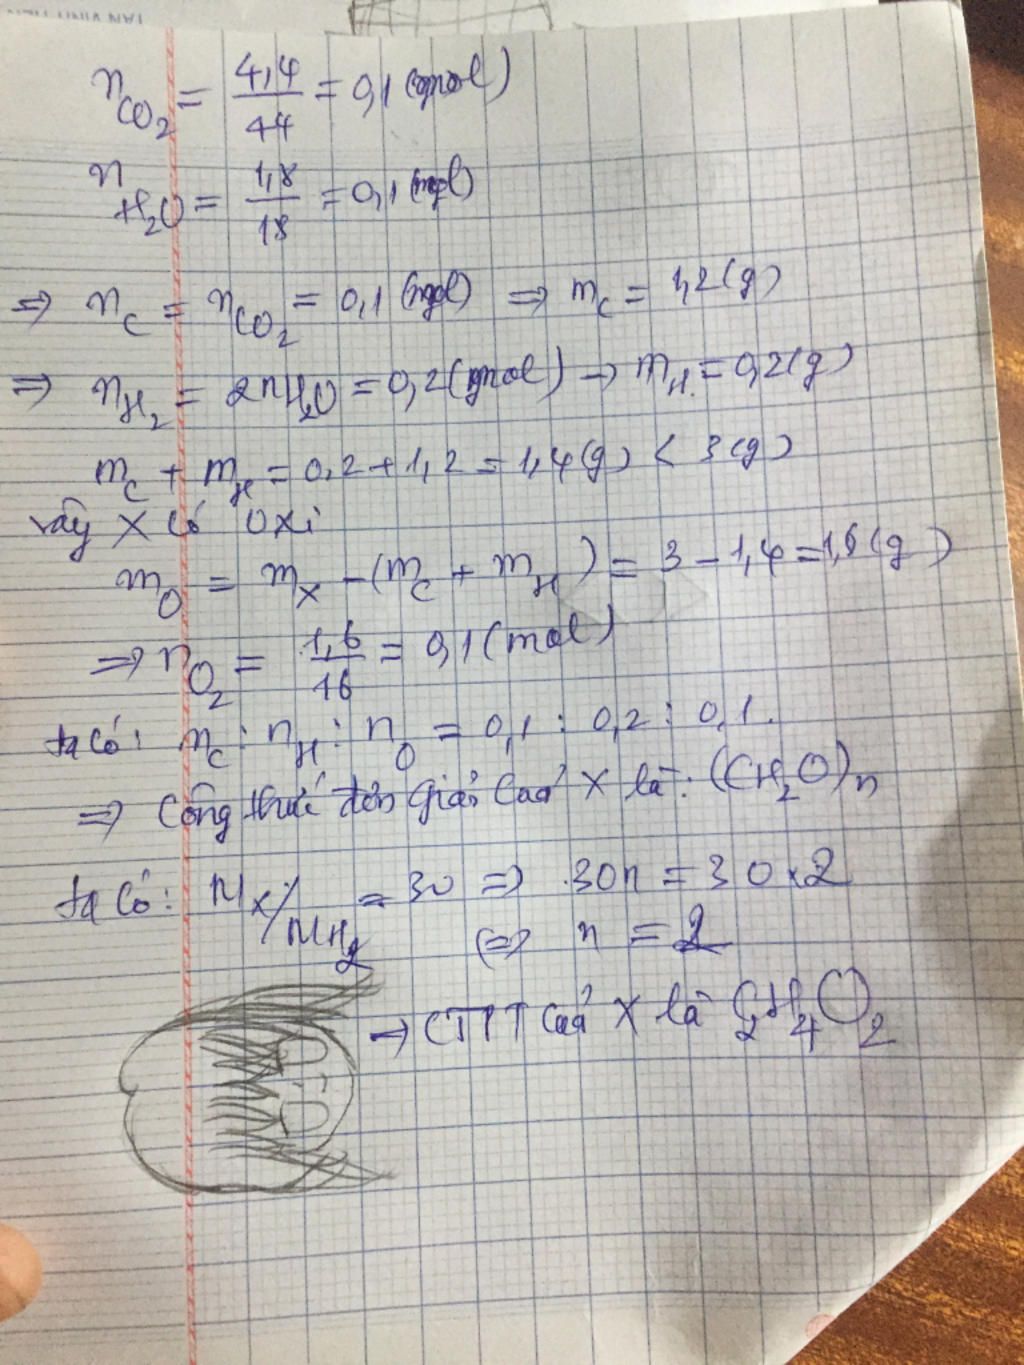 n_CO₂ = 4,4/44 = 0,1 (mol)
n_H₂O = 1,8/18 = 0,1 (mol)
⇒ n_C = n_CO₂ = 0,1 (mol) ⇒ m_C = 1,2 (g)
⇒ n_H₂ = 2nH₂O = 0,2 (mol) → m_H = 0,2 (g)
m_C + m_H = 0,2 + 1,2 = 1,4 (g) < 3 (g)
vậy X có oxi
m_O = m_X - (m_C + m_H) = 3 - 1,4 = 1,6 (g)
⇒ n_O₂ = 1,6/16 = 0,1 (mol)
ta có: n_C : n_H : n_O = 0,1 : 0,2 : 0,1.
⇒ Công thức đơn giản của X là: (CH₂O)n
ta có: M_X/M_H₂ = 30 ⇒ 30n = 30 x 2
⇔ n = 2
→ CTPT của X là C₂H₄O₂